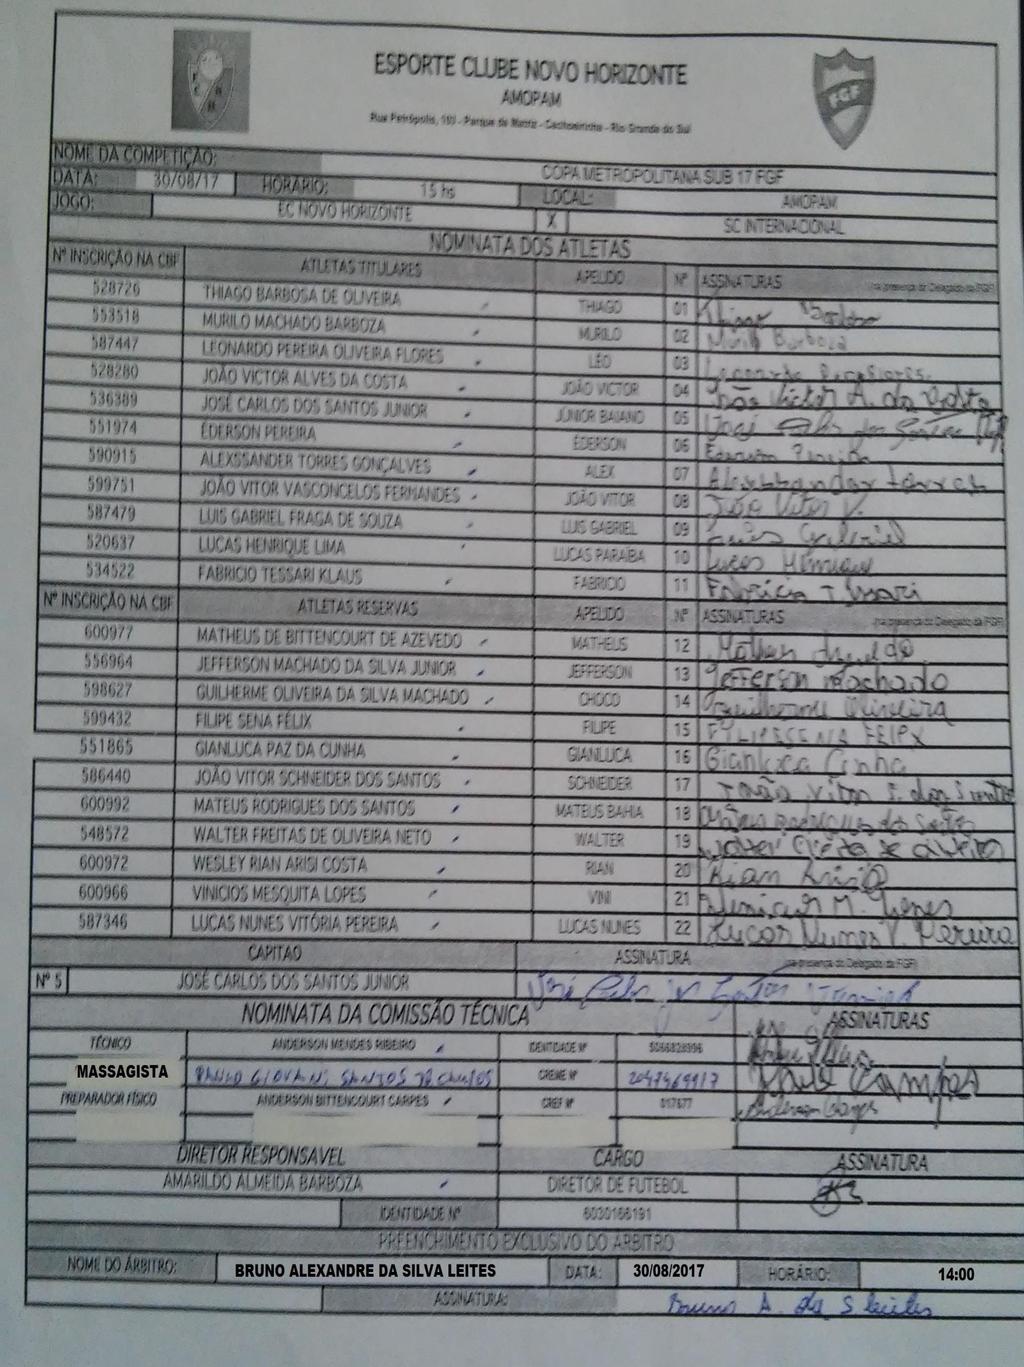 ESPORTE CLUBE NOVO HORIZONTE
AMOPAM
Rua Petrópolis, 193 - Parque da Matriz - Cachoeirinha - Rio Grande do Sul
FGF
NOME DA COMPETIÇÃO: COPA METROPOLITANA SUB 17 FGF
DATA: 30/08/17 HORÁRIO: 15 hs LOCAL: AMOPAM
JOGO: EC NOVO HORIZONTE X SC INTERNACIONAL
NOMINATA DOS ATLETAS
Nº INSCRIÇÃO NA CBF ATLETAS TITULARES APELIDO Nº ASSINATURAS (na presença do Delegado da FGF)
528726 THIAGO BARBOSA DE OLIVEIRA THIAGO 01 Thiago Barbosa
553518 MURILO MACHADO BARBOZA MURILO 02 Murilo Barboza
587447 LEONARDO PEREIRA OLIVEIRA FLORES LÉO 03 Leonardo
528280 JOÃO VICTOR ALVES DA COSTA JOÃO VICTOR 04 João Victor A. da Costa
536389 JOSÉ CARLOS DOS SANTOS JUNIOR JÚNIOR BAIANO 05 José Carlos dos Santos
551974 ÉDERSON PEREIRA ÉDERSON 06 Ederson Pereira
590915 ALEXSSANDER TORRES GONÇALVES ALEX 07 Alexssander torres
599751 JOÃO VITOR VASCONCELOS FERNANDES JOÃO VITOR 08 João Vitor V.
587479 LUIS GABRIEL FRAGA DE SOUZA LUIS GABRIEL 09 Luis Gabriel
520637 LUCAS HENRIQUE LIMA LUCAS PARAÍBA 10 Lucas Henrique
534522 FABRICIO TESSARI KLAUS FABRICIO 11 Fabricio Tessari
Nº INSCRIÇÃO NA CBF ATLETAS RESERVAS APELIDO Nº ASSINATURAS (na presença do Delegado da FGF)
600977 MATHEUS DE BITTENCOURT DE AZEVEDO MATHEUS 12 Matheus Azevedo
556964 JEFFERSON MACHADO DA SILVA JUNIOR JEFFERSON 13 Jefferson Machado
598627 GUILHERME OLIVEIRA DA SILVA MACHADO CHOCO 14 Guilherme Oliveira
599432 FILIPE SENA FÉLIX FILIPE 15
551865 GIANLUCA PAZ DA CUNHA GIANLUCA 16 Gianluca Cunha
586440 JOÃO VITOR SCHNEIDER DOS SANTOS SCHNEIDER 17 João Vitor S. dos Santos
600992 MATEUS RODRIGUES DOS SANTOS MATEUS BAHIA 18 Mateus Rodrigues dos Santos
548572 WALTER FREITAS DE OLIVEIRA NETO WALTER 19 Walter
600972 WESLEY RIAN ARISI COSTA RIAN 20 Rian Arisi
600966 VINICIOS MESQUITA LOPES VINI 21 Vinicius M. Lopes
587346 LUCAS NUNES VITÓRIA PEREIRA LUCAS NUNES 22 Lucas Nunes V. Pereira
CAPITÃO ASSINATURA (na presença do Delegado da FGF)
Nº 5 JOSÉ CARLOS DOS SANTOS JUNIOR José Carlos dos Santos Junior
NOMINATA DA COMISSÃO TÉCNICA ASSINATURAS
TÉCNICO ANDERSON MENDES RIBEIRO IDENTIDADE Nº 5066828996
MASSAGISTA PAULO GIOVANI SANTOS DE CAMPOS CREME Nº 2047469917 Paulo Campos
PREPARADOR FÍSICO ANDERSON BITTENCOURT CARPES CREF Nº 017677 Anderson Carpes
DIRETOR RESPONSAVEL CARGO ASSINATURA
AMARILDO ALMEIDA BARBOZA DIRETOR DE FUTEBOL
IDENTIDADE Nº 6030166191
PREENCHIMENTO EXCLUSIVO DO ÁRBITRO
NOME DO ÁRBITRO: BRUNO ALEXANDRE DA SILVA LEITES DATA: 30/08/2017 HORÁRIO: 14:00
ASSINATURA: Bruno A. da S. Leites